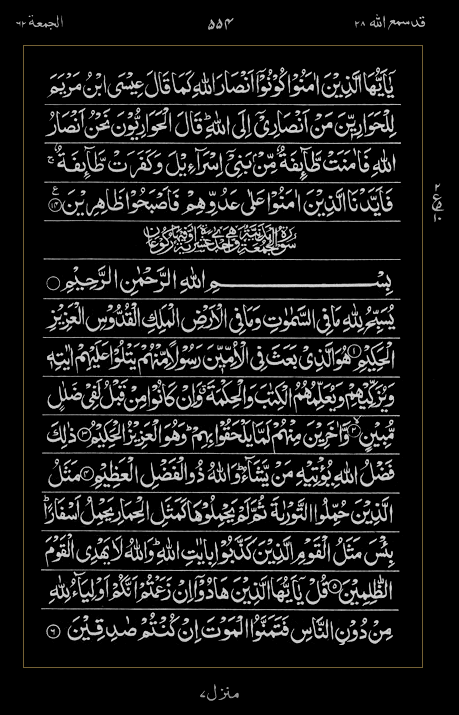 قد سمع الله ۲۸
۵۵۴
الجمعة ۶۲
يٰۤاَيُّهَا الَّذِيْنَ اٰمَنُوْا كُوْنُوْۤا اَنْصَارَ اللهِ كَمَا قَالَ عِيْسَى ابْنُ مَرْيَمَ
لِلْحَوَارِيّٖنَ مَنْ اَنْصَارِيْۤ اِلَى اللهِ ؕ قَالَ الْحَوَارِيُّوْنَ نَحْنُ اَنْصَارُ
اللهِ فَاٰمَنَتْ طَّآئِفَةٌ مِّنْۢ بَنِيْۤ اِسْرَآءِيْلَ وَكَفَرَتْ طَّآئِفَةٌ ۚ
فَاَيَّدْنَا الَّذِيْنَ اٰمَنُوْا عَلٰى عَدُوِّهِمْ فَاَصْبَحُوْا ظَاهِرِيْنَ ۟﴿۱۴﴾
۲
ع
۱۰
سُوْرَةُ الْجُمُعَةِ مَدَنِيَّةٌ
بِسْمِ اللهِ الرَّحْمٰنِ الرَّحِيْمِ ۟
يُسَبِّحُ لِلّٰهِ مَا فِي السَّمٰوٰتِ وَمَا فِي الْاَرْضِ الْمَلِكِ الْقُدُّوْسِ الْعَزِيْزِ
الْحَكِيْمِ ﴿۱﴾ هُوَ الَّذِيْ بَعَثَ فِي الْاُمِّيّٖنَ رَسُوْلًا مِّنْهُمْ يَتْلُوْا عَلَيْهِمْ اٰيٰتِهٖ
وَيُزَكِّيْهِمْ وَيُعَلِّمُهُمُ الْكِتٰبَ وَالْحِكْمَةَ ۗ وَاِنْ كَانُوْا مِنْ قَبْلُ لَفِيْ ضَلٰلٍ
مُّبِيْنٍ ﴿۲﴾ۙ وَّاٰخَرِيْنَ مِنْهُمْ لَمَّا يَلْحَقُوْا بِهِمْ ؕ وَهُوَ الْعَزِيْزُ الْحَكِيْمُ ﴿۳﴾ ذٰلِكَ
فَضْلُ اللهِ يُؤْتِيْهِ مَنْ يَّشَآءُ ؕ وَاللهُ ذُو الْفَضْلِ الْعَظِيْمِ ﴿۴﴾ مَثَلُ
الَّذِيْنَ حُمِّلُوا التَّوْرٰىةَ ثُمَّ لَمْ يَحْمِلُوْهَا كَمَثَلِ الْحِمَارِ يَحْمِلُ اَسْفَارًا ؕ
بِئْسَ مَثَلُ الْقَوْمِ الَّذِيْنَ كَذَّبُوْا بِاٰيٰتِ اللهِ ؕ وَاللهُ لَا يَهْدِي الْقَوْمَ
الظّٰلِمِيْنَ ﴿۵﴾ قُلْ يٰۤاَيُّهَا الَّذِيْنَ هَادُوْۤا اِنْ زَعَمْتُمْ اَنَّكُمْ اَوْلِيَآءُ لِلّٰهِ
مِنْ دُوْنِ النَّاسِ فَتَمَنَّوُا الْمَوْتَ اِنْ كُنْتُمْ صٰدِقِيْنَ ﴿۶﴾
منزل ۷